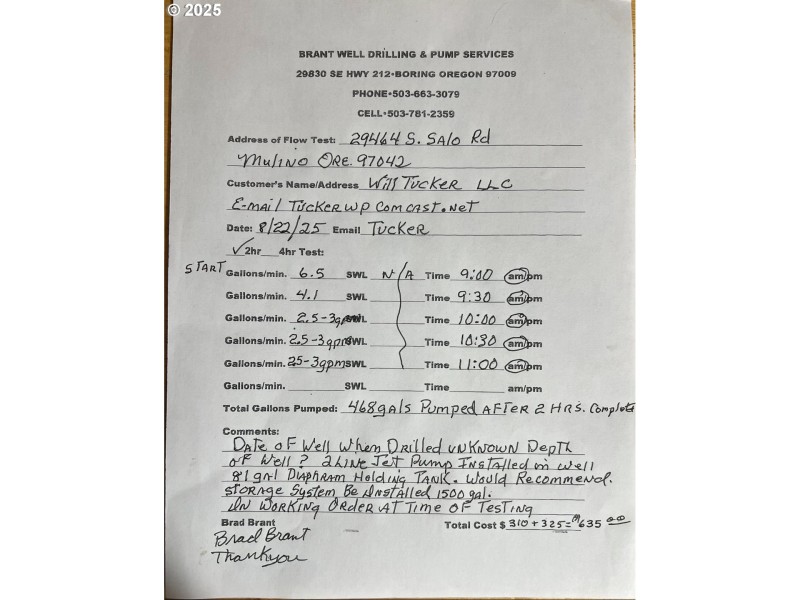 © 2025
BRANT WELL DRILLING & PUMP SERVICES
29830 SE HWY 212•BORING OREGON 97009
PHONE•503-663-3079
CELL•503-781-2359
Address of Flow Test: 29464 S. SALO Rd
MULINO ORE. 97042
Customer's Name/Address Will TUCKER LLC
E-mail TUCKERWP COMCAST.NET
Date: 8/22/25 Email TUCKER
✓2hr 4hr Test:
START Gallons/min. 6.5 SWL N/A Time 9:00 am/pm
Gallons/min. 4.1 SWL Time 9:30 am/pm
Gallons/min. 2.5-3gpm SWL Time 10:00 am/pm
Gallons/min. 2.5-3gpm SWL Time 10:30 am/pm
Gallons/min. 25-3gpm SWL Time 11:00 am/pm
Gallons/min. SWL Time am/pm
Total Gallons Pumped: 468gals Pumped AFTER 2 HRS. Complete
Comments:
DATE OF Well When DRILLED UNKNOWN Depth
OF Well? 2 LINE JET PUMP INSTALLED in well
81 gal DIAPHRAM HOLDING TANK. WOULD RECOMMEND.
STORAGE SYSTEM BE INSTALLED 1500 gal.
IN WORKING ORDER AT TIME OF TESTING
Brad Brant Total Cost $ 310 + 325 = 635 00
Brad Brant
Thankyou